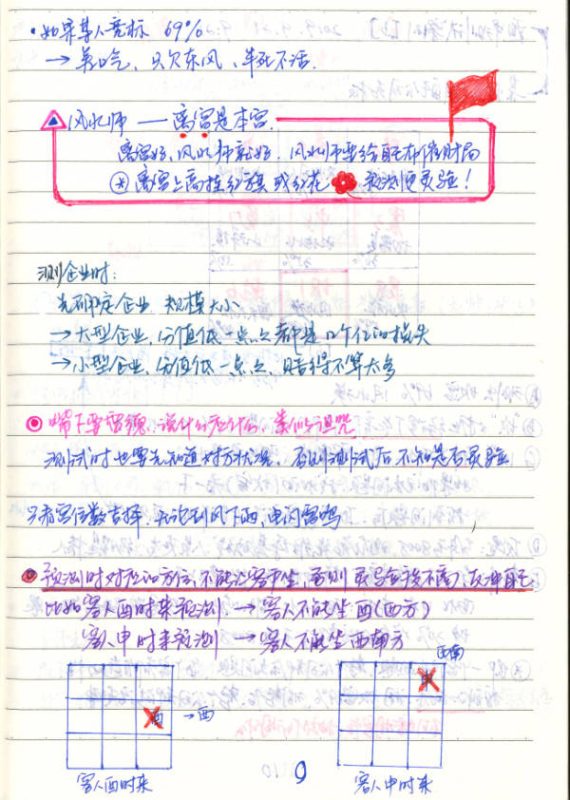 • 如果某人竞标 69%
→ 万事俱备，只欠东风，半死不活.
风水师 —— 离宫是本宫.
离宫好，风水师就好. 风水师要给自己布催财局
⊛ 离宫上高挂红旗 或红花 预测便灵验！
测企业时：
先确定企业 规模大小
→大型企业，分值低一点点都是几个亿的损失
→小型企业，分值低一点点，赔得不算太多
◎ 嘴下要留德，说什么应什么，类似诅咒
测试时也要先知道对方状况，否则测试后不知是否灵验
只看宫位数吉祥，无论刮风下雨，电闪雷鸣
预测时对应的方位，不能让客户坐，否则 灵验会较不高，反冲自己
比如客人酉时来预测. → 客人不能坐酉(西方)
客人申时来预测 → 客人不能坐西南方
西南
酉 → 西
申
客人酉时来
9
客人申时来